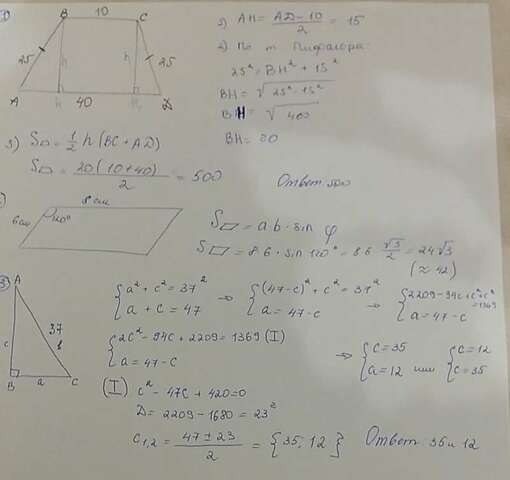 1)
B 10 C
25 h h 25
A h 40 h D
1) AH = (AD - 10)/2 = 15
2) По т. Пифагора:
25² = BH² + 15²
BH = √(25² - 15²)
BH = √400
BH = 20
3) S = 1/2 h (BC + AD)
S = 20(10+40)/2 = 500
Ответ: 500
8 см
6 см 120°
S = a b · sin φ
S = 8·6 · sin 120° = 8·6 √3/2 = 24√3
(≈ 42)
3)
A
37
c b
B a C
{a² + c² = 37² ⇒ {(47-c)² + c² = 37² ⇒ {2209 - 94c + c² + c² = 1369
{a + c = 47 {a = 47 - c {a = 47 - c
{2c² - 94c + 2209 = 1369 (I) ⇒ {c = 35 {c = 12
{a = 47 - c {a = 12 или {c = 35
(I) c² - 47c + 420 = 0
D = 2209 - 1680 = 23²
c1,2 = (47 ± 23)/2 = {35; 12} Ответ: 35 и 12